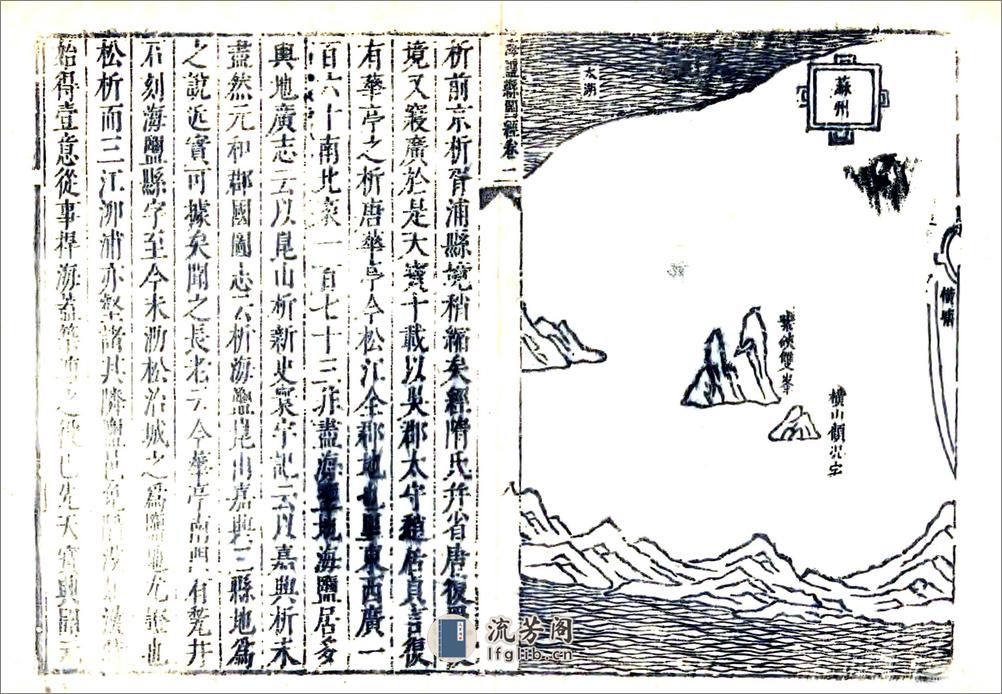 蘇州
太湖
橫塘
紫硤雙峯
橫山顧況宅
海鹽縣圖經卷一
八
析前京析胥浦縣境稍縮矣經隋氏幷省唐復
境又寖廣於是天寶十載以吳郡太守趙居貞言復
有華亭之析唐華亭今松江全郡地也畢東西廣一
百六十南北袤一百七十三非盡海鹽地海鹽居多
輿地廣志云以崑山析新史寰宇記云以嘉興析未
盡然元和郡國圖志云析海鹽崑山嘉興三縣地爲
之說近實可據矣聞之長老云今華亭南門有甃井
石刻海鹽縣字至今未泐松治城之爲鹽地尤證也
松析而三江泖浦亦堅諸其隣鹽邑免
始得壹意從事捍海葢築之役已先天寶興
流芳阁
lfglib.cn